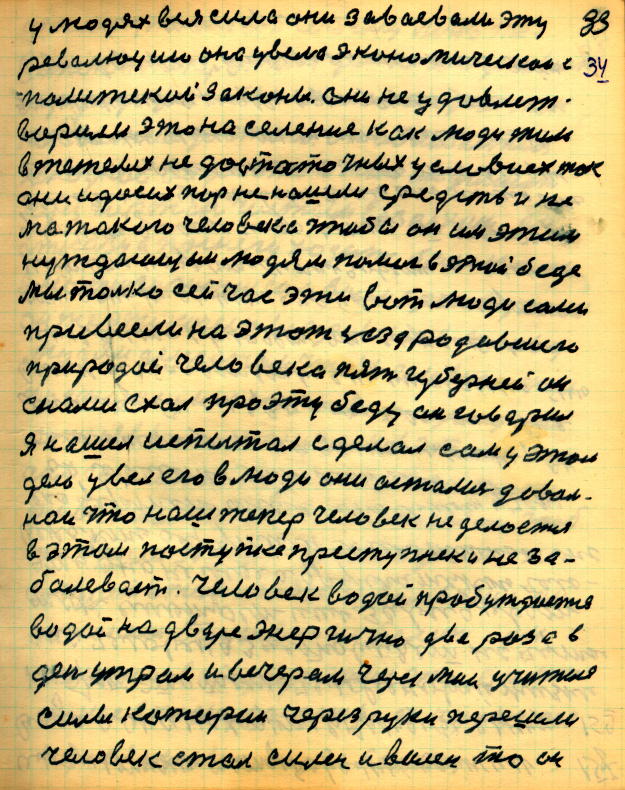 у людях вся сила они заваевали эту 33
револющию она увела экономическои с 34
политской закони. они не удовлет-
варили это население как люди жили
в тежелих не достаточных условиех так
они идосих пор не нашли средств и не
матакого человека чтобы он им этим
нуждающим людям помог в этой беде
мы толко сейчас эти вот люди сами
привели на этот сезд родавшего
природой человека пят губерней он
снами схал про эту беду он говарил
я нашел испитал сделал саму этом
дело увел его в люди они астались довал-
ной что наш тепер человек не делоется
в этом поступке преступнеки не за-
балевает. человек водой пробуждается
водой на дваре энергично две раза в
ден утрам и вечерам через мои учителя
сили котории через руки перешли
человек стал силен и волен то он